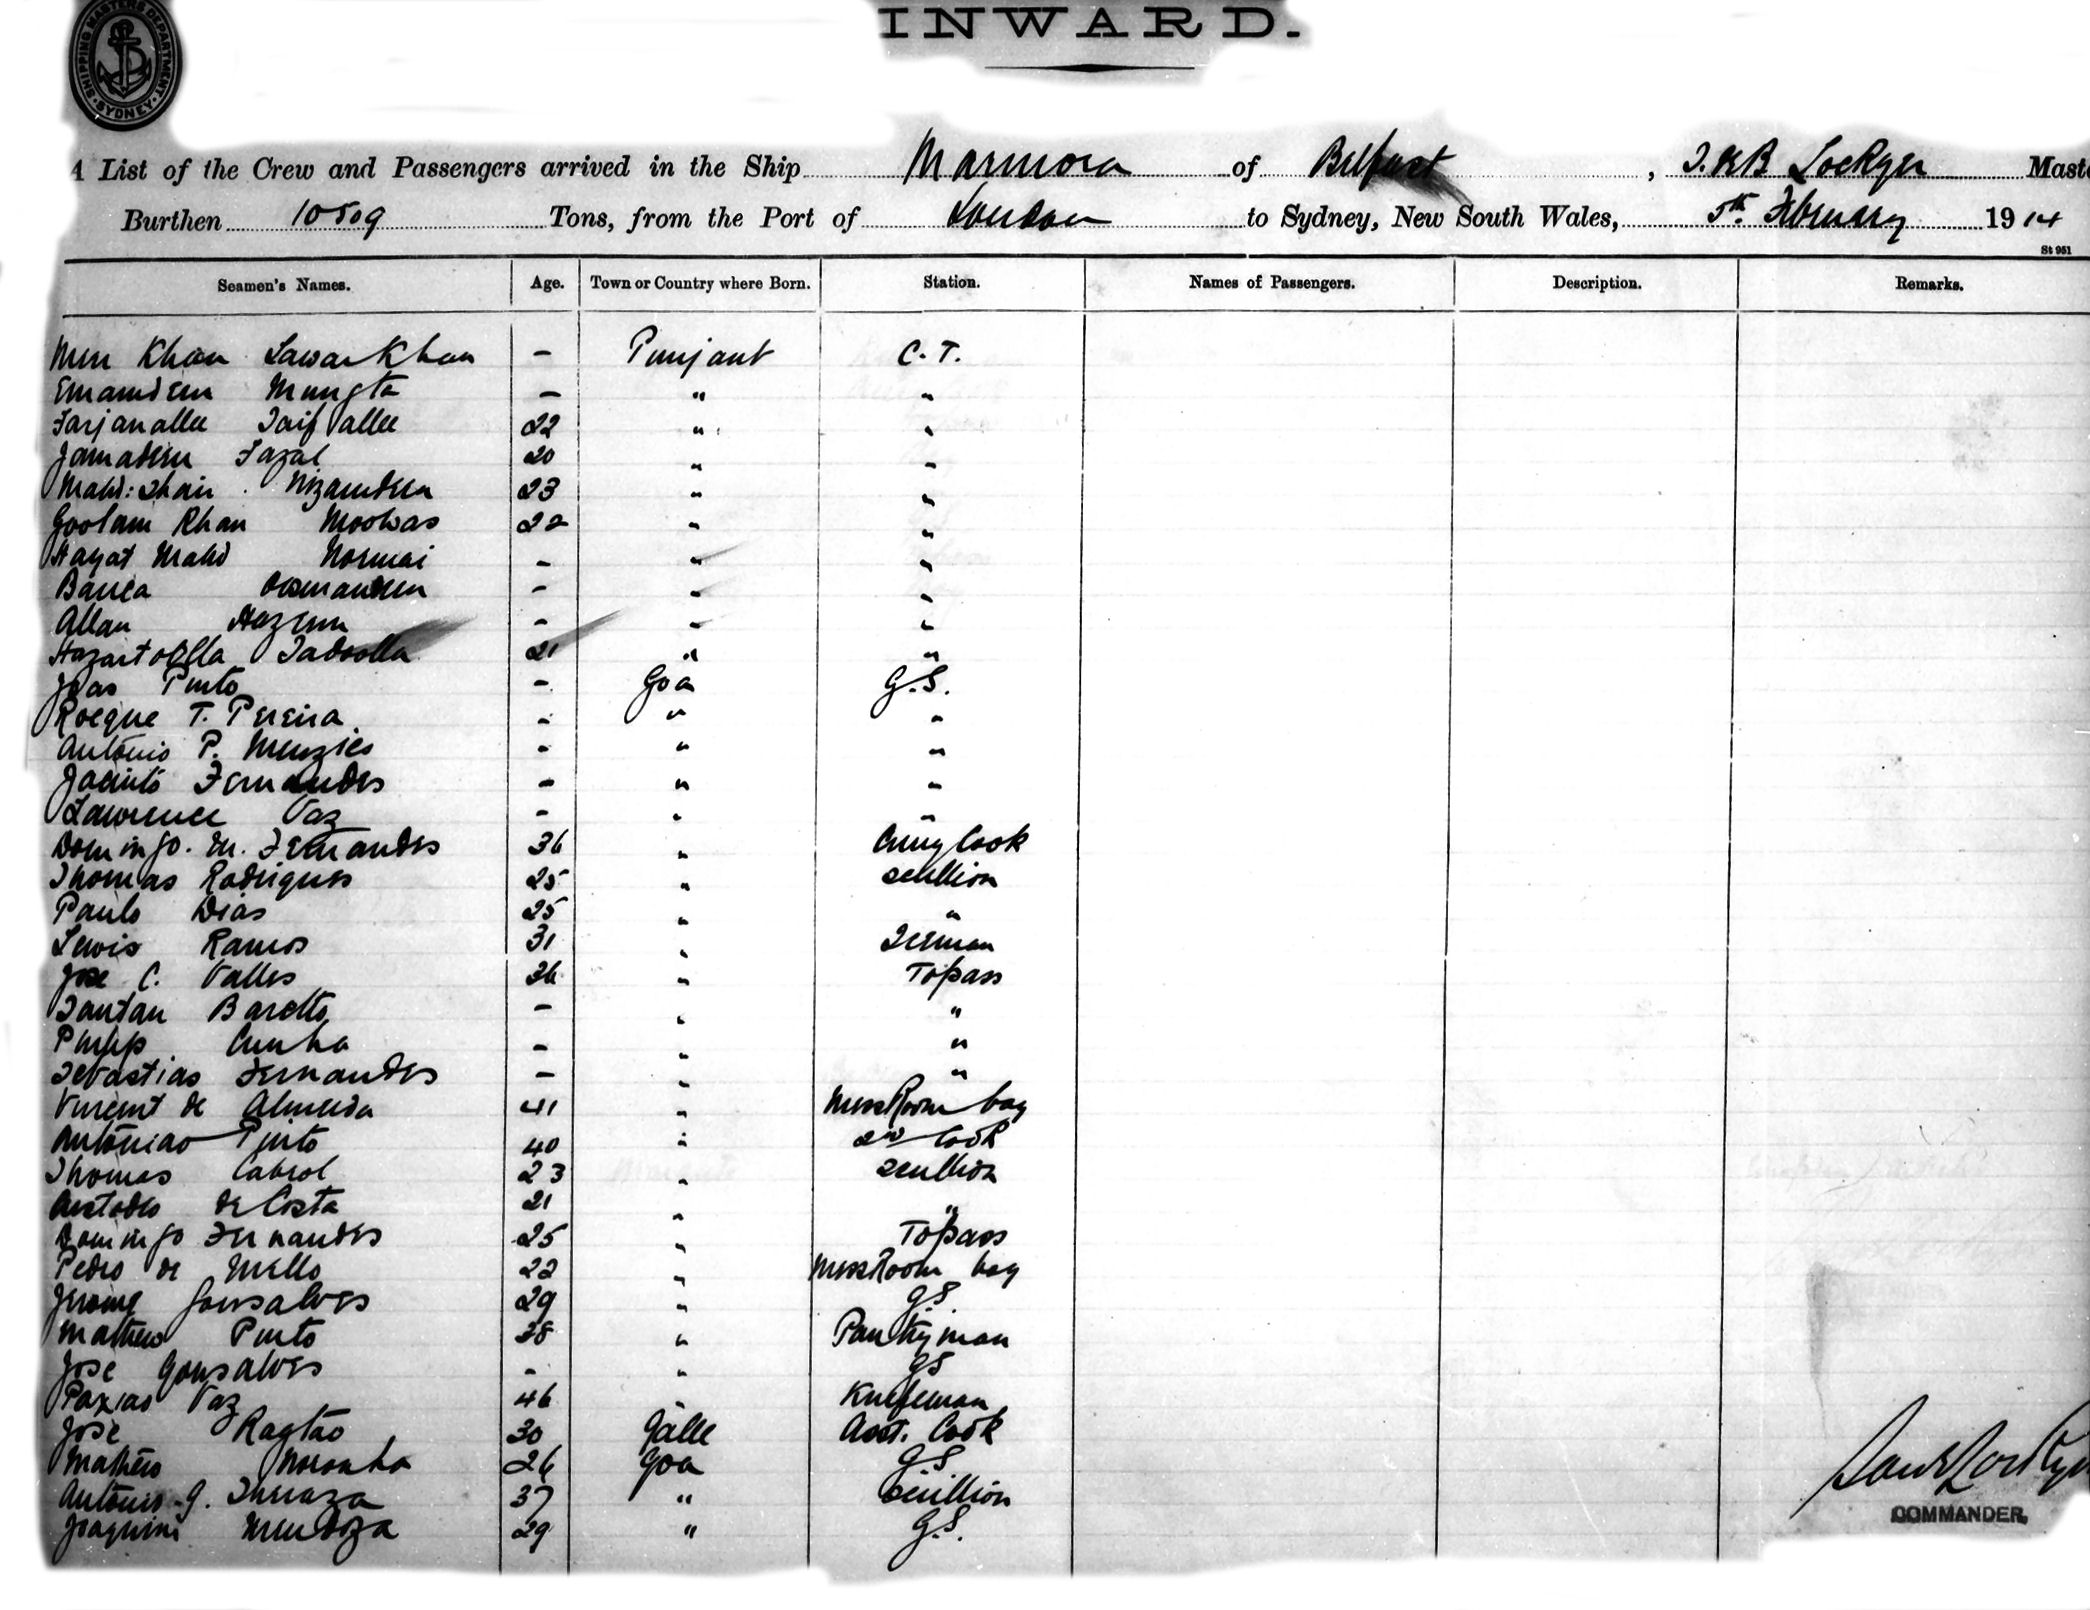 SHIPPING MASTERS DEPARTMENT SYDNEY
INWARD.
A List of the Crew and Passengers arrived in the Ship Marmora of Belfast, Lockyer Mast
Burthen 10509 Tons, from the Port of London to Sydney, New South Wales, 5th February 1914
St 951
Seamen's Names. Age. Town or Country where Born. Station. Names of Passengers. Description. Remarks.
Khan Sawar Khan – Punjaub C. T.
Emamdeen Mungta – " "
Farjanallee 22 " "
Jamadeen Fazal 20 " "
Nizamdeen 23 " "
Goolam Khan 22 " "
Hayat Mahd – " "
– " "
Allan – " "
21 " "
Joao Pinto – Goa G.S.
Rocque T. Pereira – " "
Antonio P. Menzies – " "
Jacinto Fernandes – " "
Lawrence Vaz – " "
Domingo. M. Fernandes 36 " Cook
Thomas Rodrigues 25 " Scullion
Paulo Dias 25 " "
Lewis Ramos 31 "
Jose C. Valles 36 " Topass
Baretto – " "
Philip Cunha – " "
Sebastiao Fernandes – " "
Vincent de Almeida 41 " Mess Room boy
Pinto 40 " 2nd Cook
Thomas Cabrol 23 " Scullion
de Costa 21 " "
Domingo Fernandes 25 " Topass
Pedro de Mello 22 " Mess Room boy
Jerome Gonsalves 29 " G.S.
Mathew Pinto 38 " Pantryman
Jose Gonsalves – " GS
Vaz 46 " Knifeman
Jose 30 Galle Asst. Cook
Noronha 26 Goa G.S
Antonio 37 " Scullion
Joaquim Mendoza 29 " G.S.
COMMANDER,